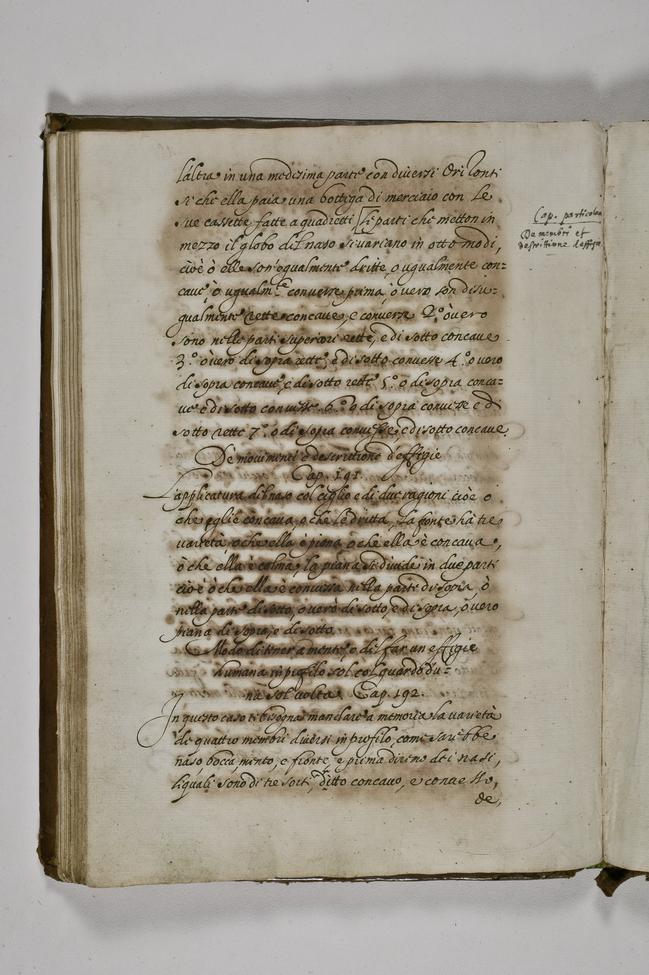 l'altra in una medesima parte con diversi Orizonti
si che ella paia una bottega di merciaio con le
sue cassette fatte a quadretti [Le parti che metton in
mezzo il globo del naso si variano in otto modi,
cioè ò elle son' egualmente dritte, o ugualmente con-
cave, o ugualm.te convesse prima, o vero son disu-
gualmente rette concave, e convesse 2.º ò vero
sono nelle parti superiori rette, e di sotto concave
3.º ò vero di sopra rette, e di sotto convesse 4.º o vero
di sopra concave, e di sotto rette 5.º o di sopra conca-
ve e di sotto convesse 6.º o di sopra convesse e di
sotto rette 7.º o di sopra convesse, e di sotto concave.
De movimenti e descrittione d'effigie
Cap. 191.
L'applicatura del naso col ciglio e di due ragioni cioè o
che eglie concava, o che l'e dritta, La fronte hà tre
varietà o che ella è piana, o che ella è concava,
ò che ella è colma, la piana si divide in due parti
cio è ò che ella è convessa nella parte di sopra, ò
nella parte di sotto, o vero di sotto, e di sopra, o vero
piana di sopra, e di sotto.
Modo di tener a mente, o del far un effigie
humana in profilo sol col guardo d'u-
na sol volta. Cap. 192.
In questo caso ti bisogna mandare a memoria la varietà
de quattro membri diversi in profilo, come sarebbe
naso bocca, mento, e fronte, e prima diremo dei nasi,
li quali sono di tre sorti, dritto concavo, e convesso,
de,
Cap. particolar
De membri et
descrittione d'effigie